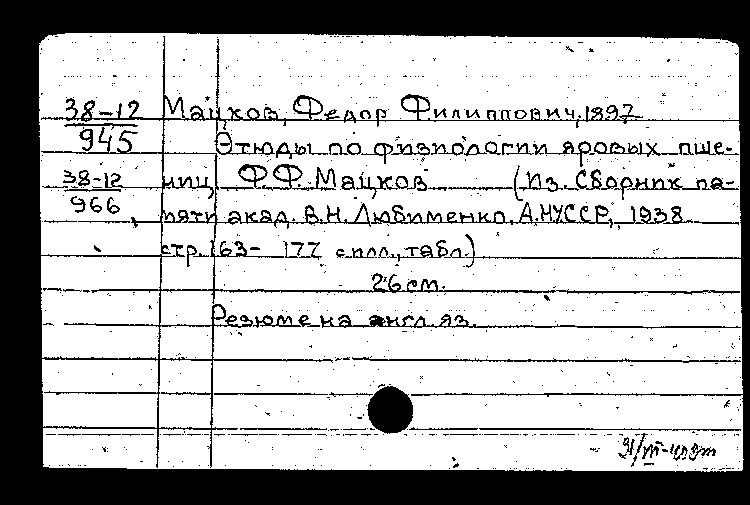 38-12 Мацков, Федор Филиппович, 1897
945 Этюды по физиологии яровых пше-
38-12 ниц, Ф.Ф. Мацков (Из. Сборник па-
966, мяти акад. В.Н. Любименко. А.НУССР, 1938
стр. 163- 177 с илл., табл.)
26 см.
Резюме на англ. яз.